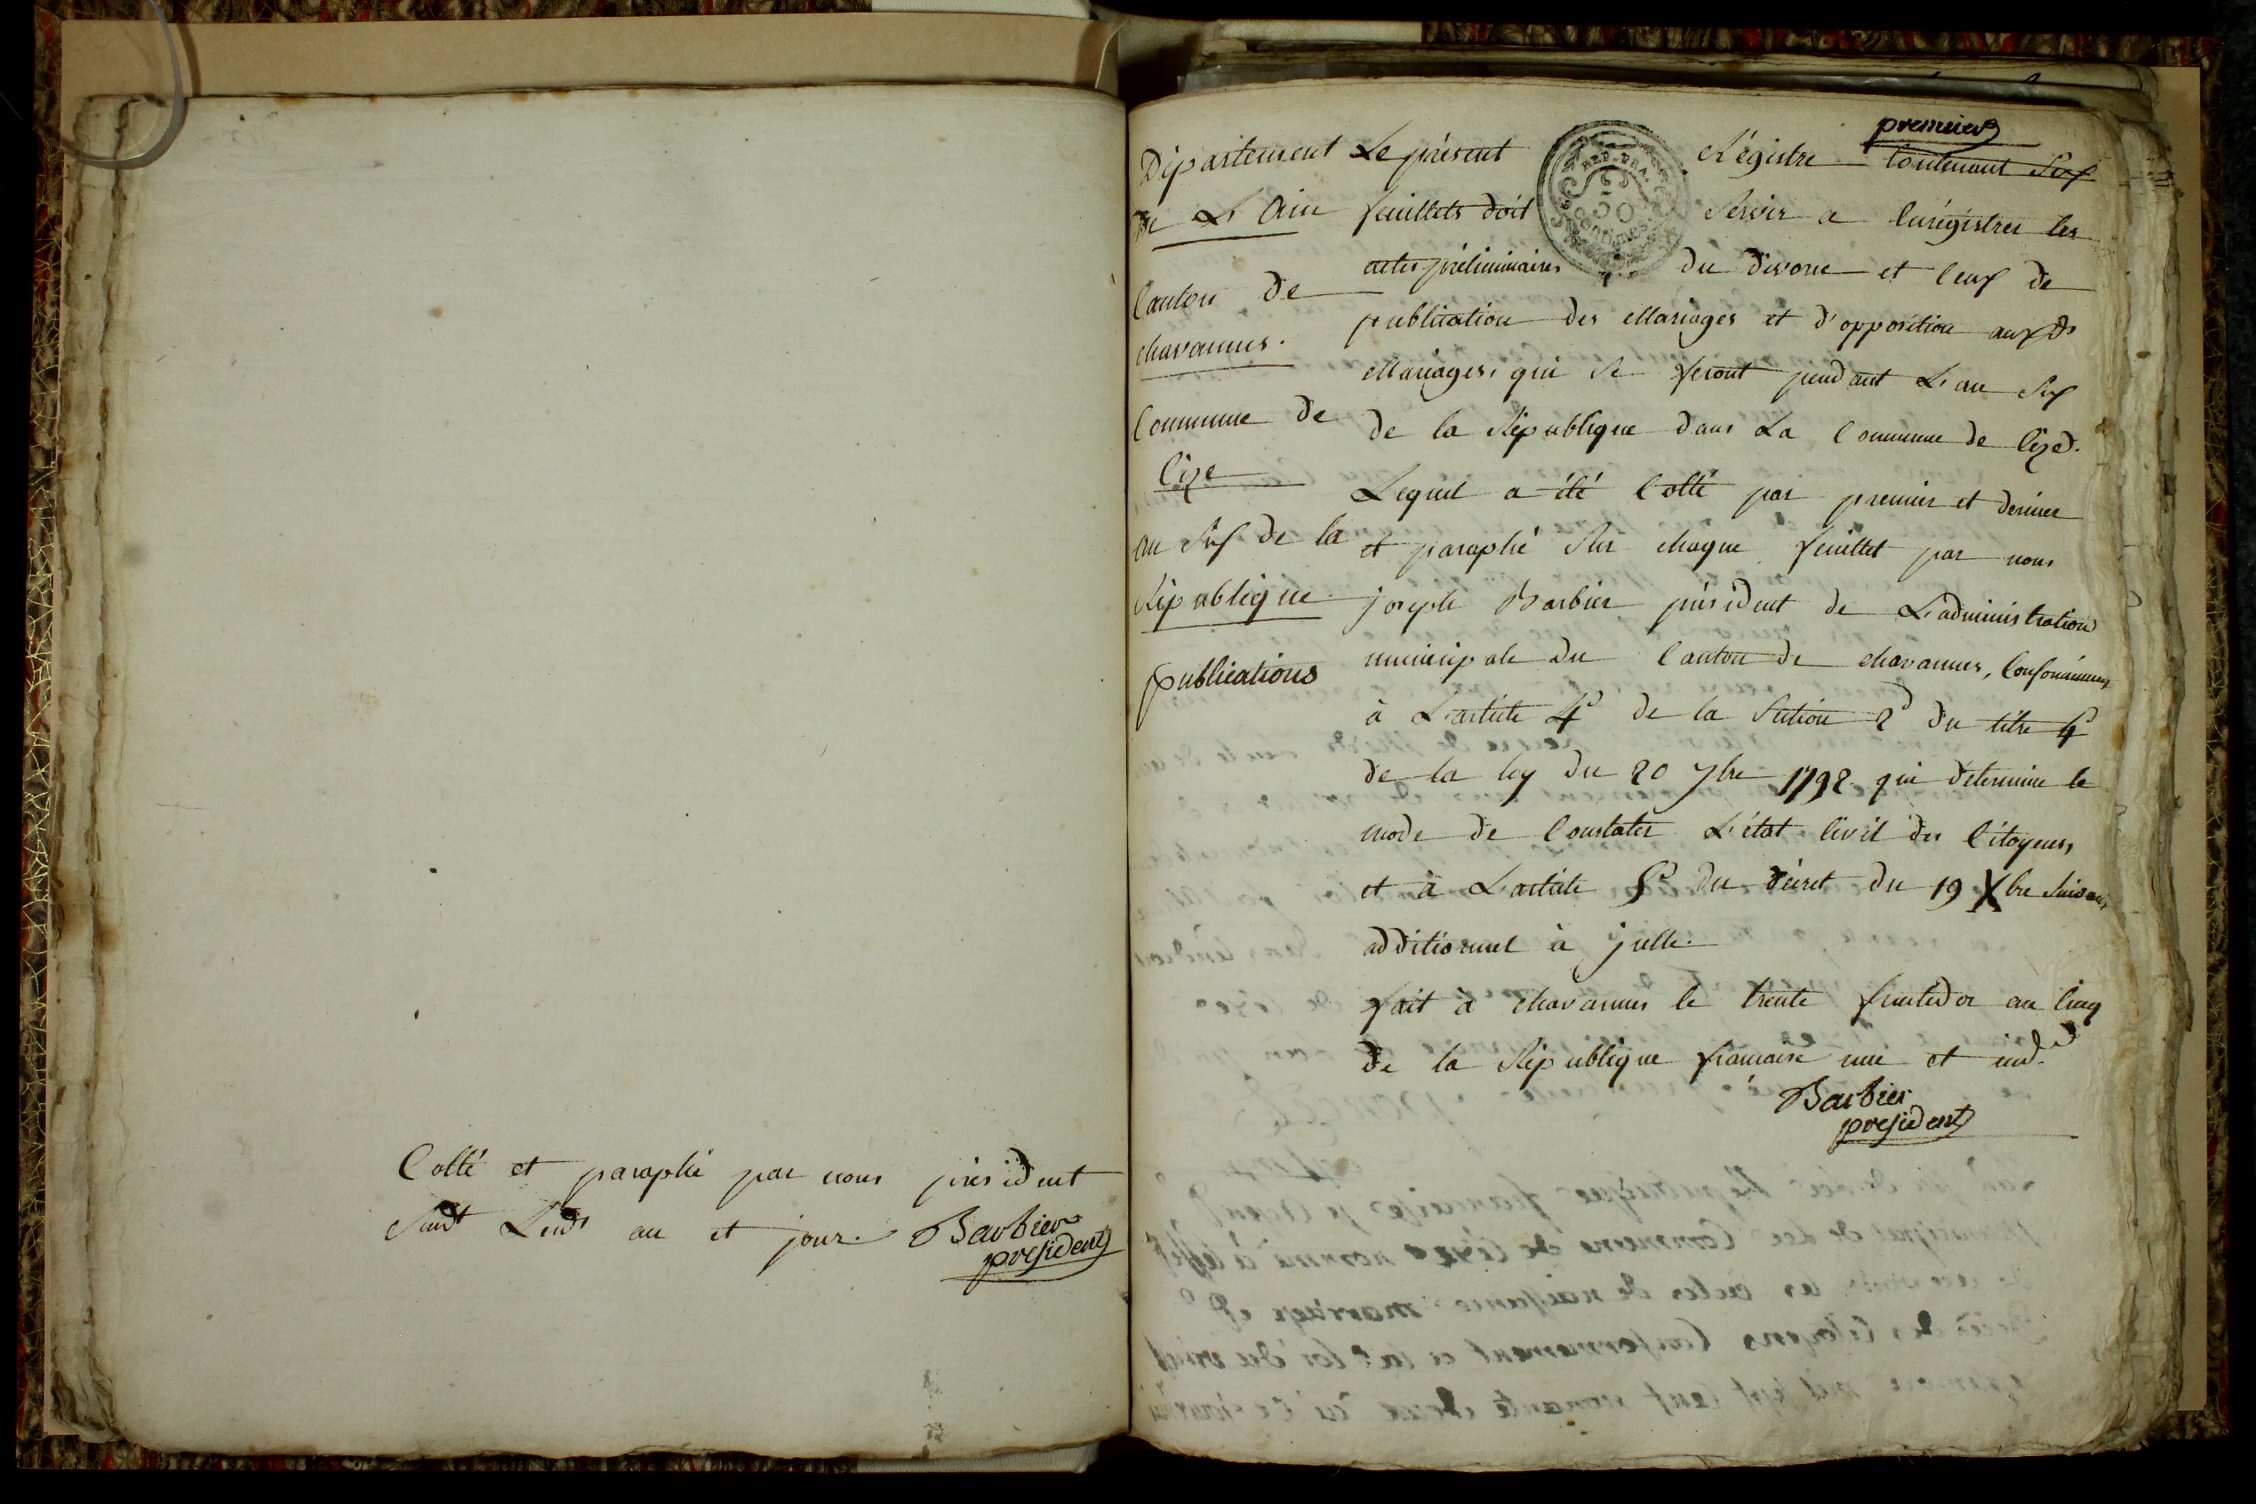 Collé et paraphé par nous président
Susdt Lesds an et jour. Barbier
président
premier
Département
De L'Ain
Canton de
chavannes.
Commune de
Cize
an Six de la
République
publications
Le présent Régistre Contenant Six
feuillets doit Servir a Enrégistrer les
actes préliminaires du divorce et Ceux de
publication des Mariages et d'opposition auxds
Mariages, qui se feront pendant L'an Six
de la République dans La Commune de Cize.
Lequel a été Cotté par premier et dernier
et paraphé Sur chaque feuillet par nous
joseph Barbier président de L'administration
municipale du Canton de chavannes, Conformément
à L'article 4e de la Section 2e du titre 4e
de la loy du 20 7bre 1792 qui détermine le
mode de Constater L'état Civil des Citoyens,
et à L'article 5e du décret du 19 Xbre Suivant
additionnel à jcelle.
fait à chavannes le trente fructidor an Cinq
de la République francaise une et indle
Barbier
président
REP. FRA.
50
centimes